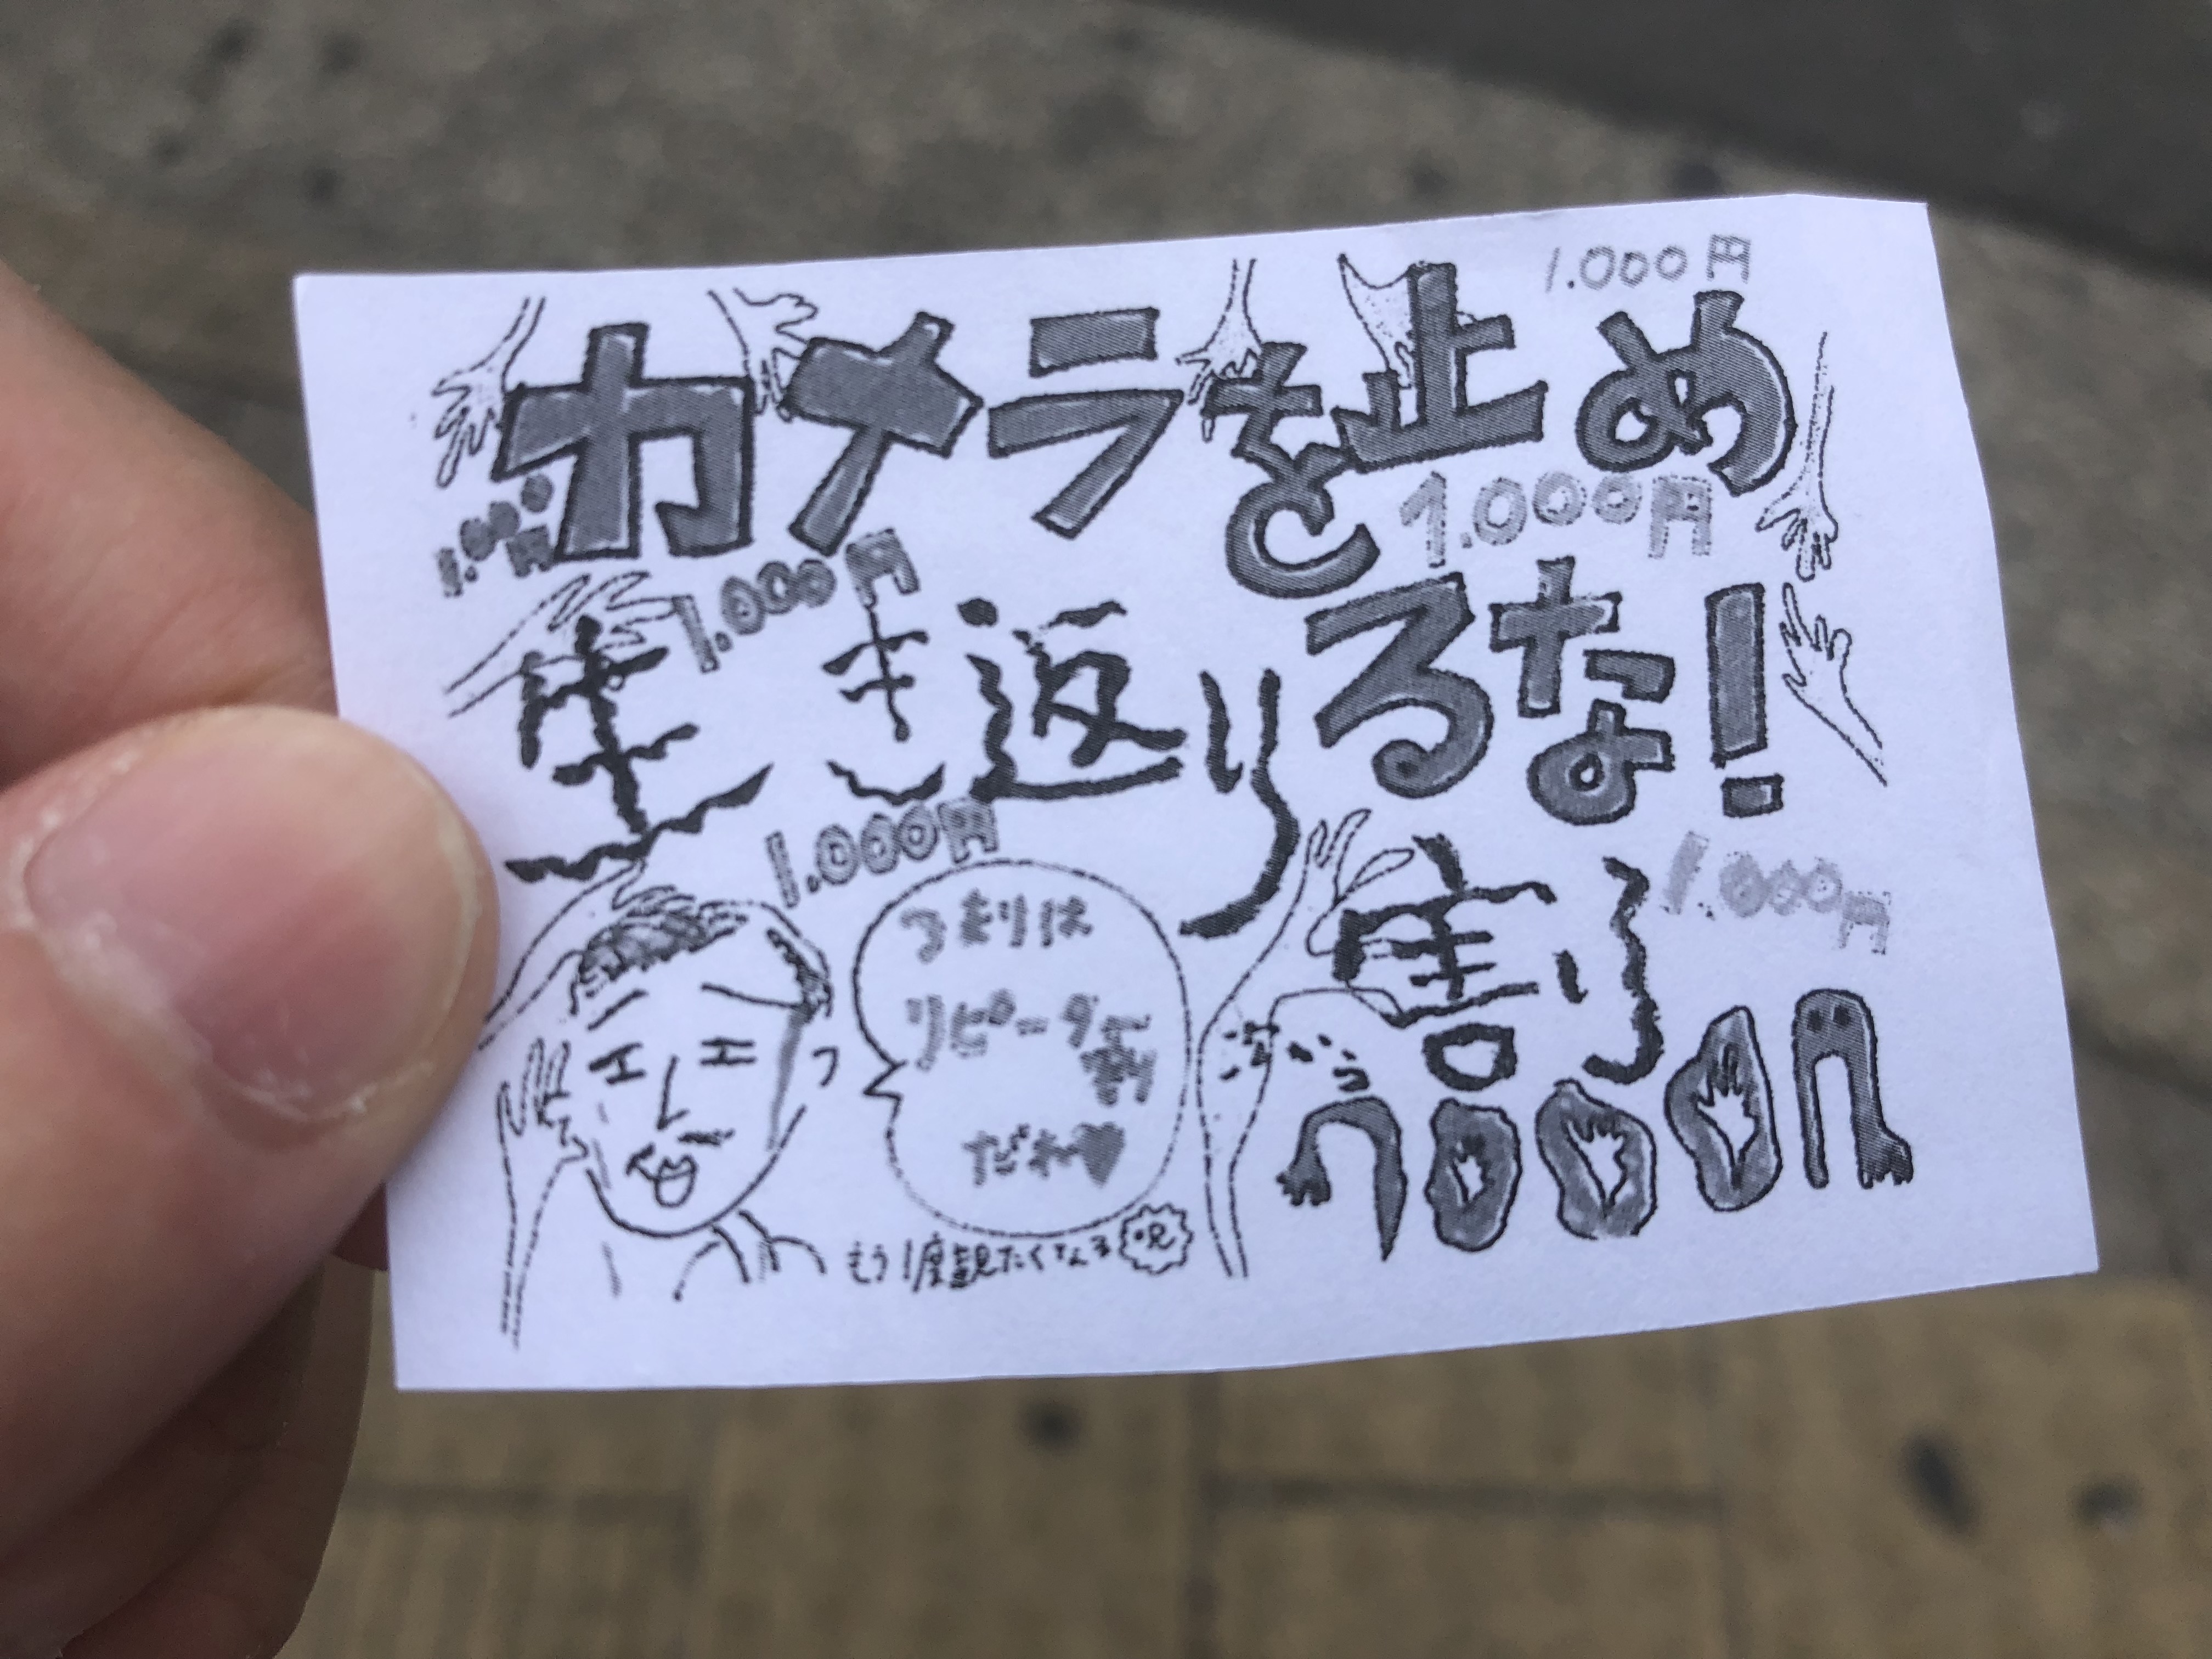 1.000円
カメラを止め
るな!
1.000円
1.000円
1.000円
生き返り
割
1.000円
1.000円
1000円
つまりは
リピーター
割
だね♥
もう1度観たくなる
呪